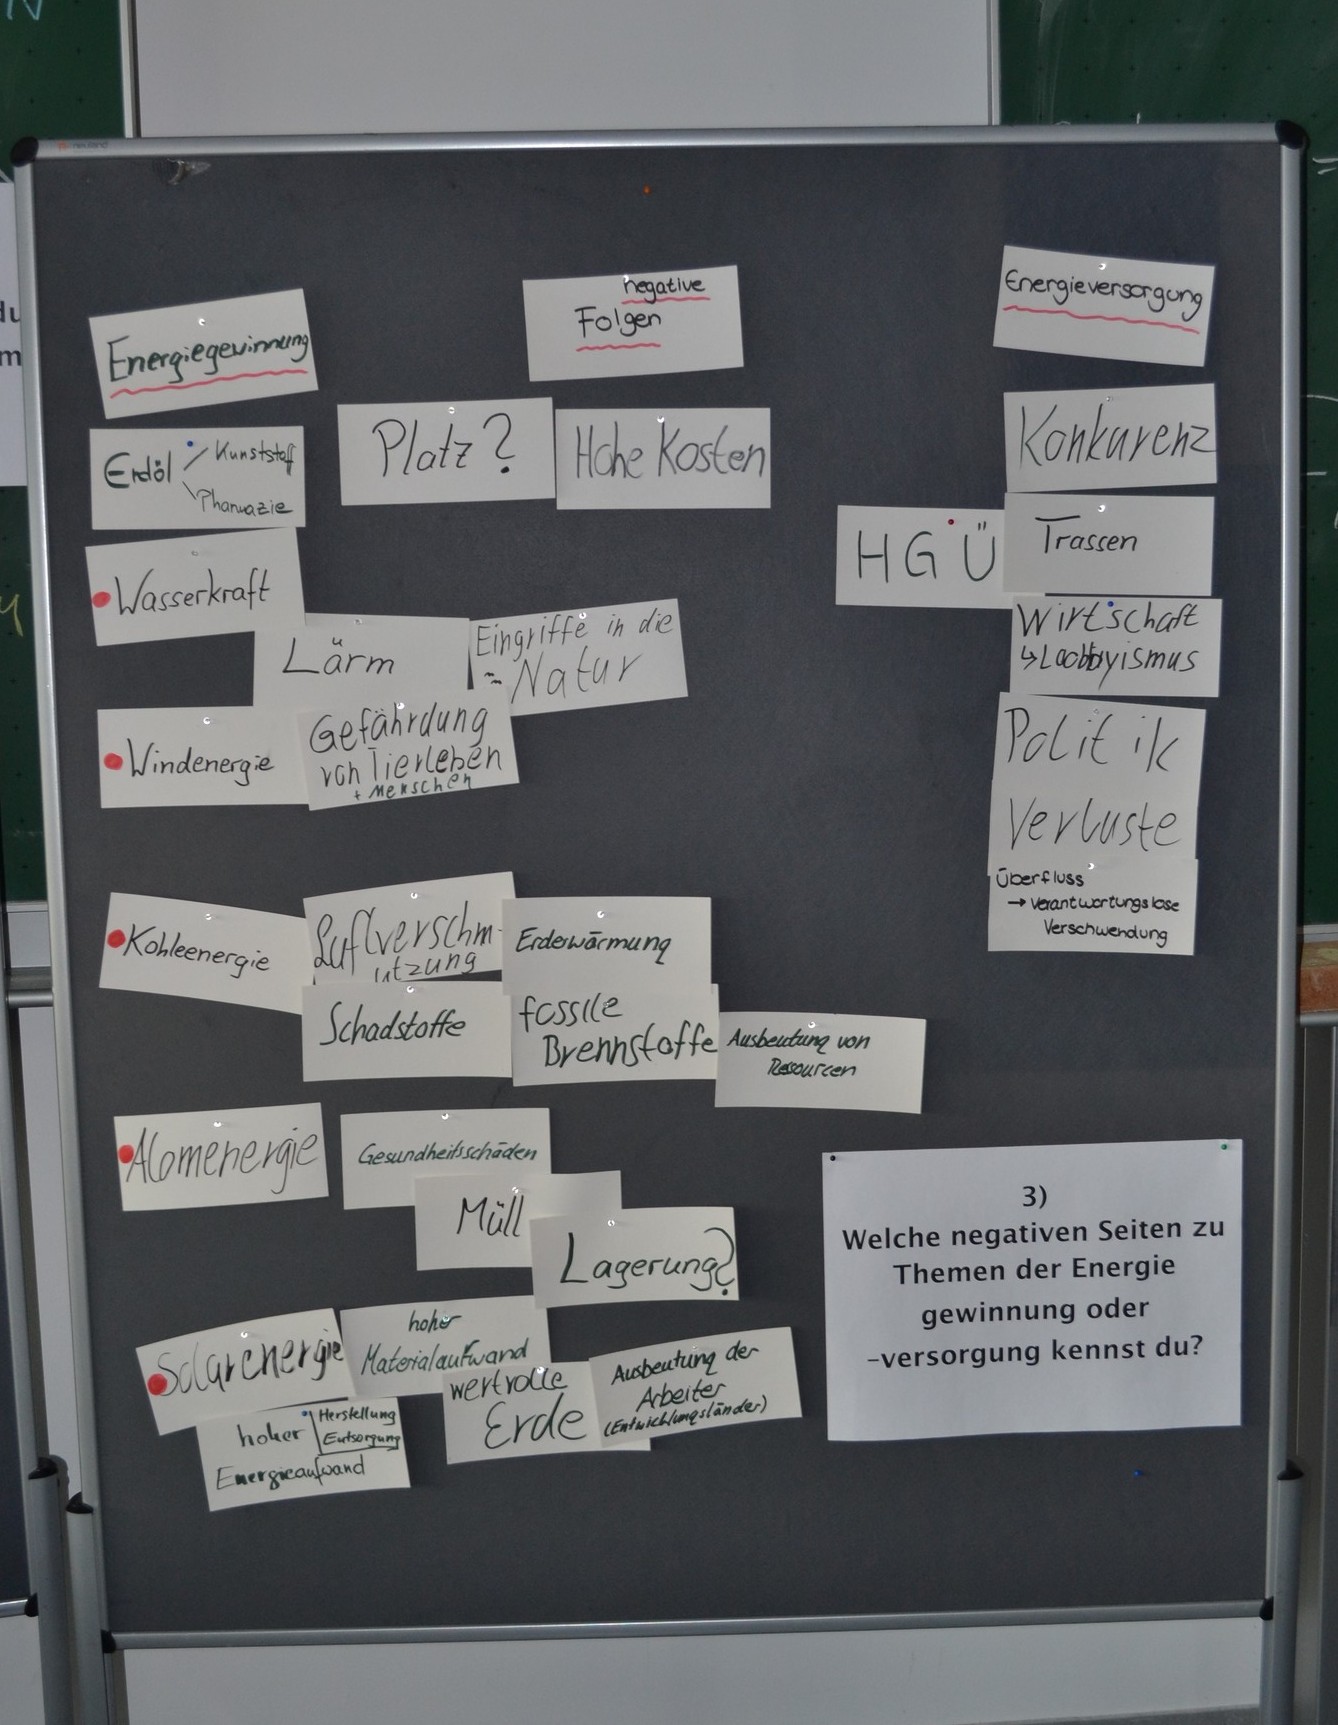 neuland
Energiegewinnung
negative
Folgen
Energieversorgung
Erdöl
Kunststoff
Pharmazie
Platz?
Hohe Kosten
Konkurenz
HGÜ
Trassen
Wasserkraft
Lärm
Eingriffe in die
Natur
Wirtschaft
↳ Lobbyismus
Windenergie
Gefährdung
von Tierleben
+ Menschen
Politik
Verluste
Überfluss
→ verantwortungslose
Verschwendung
Kohleenergie
Luftverschm-
utzung
Erderwärmung
Schadstoffe
fossile
Brennstoffe
Ausbeutung von
Resourcen
Atomenergie
Gesundheitsschäden
Müll
Lagerung?
3)
Welche negativen Seiten zu
Themen der Energie
gewinnung oder
-versorgung kennst du?
Solarenergie
hoher
Materialaufwand
wertvolle
Erde
Ausbeutung der
Arbeiter
(Entwicklungsländer)
hoher
Herstellung
Entsorgung
Energieaufwand